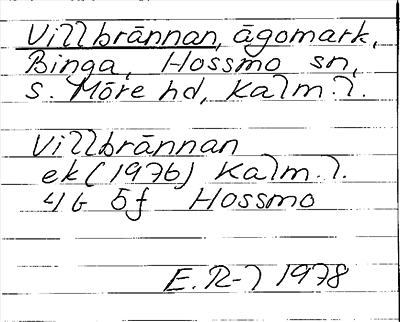 Villbrännan, ägomark,
Binga, Hossmo sn,
S. Möre hd, Kalm.l.
Villbrännan
ek (1976) Kalm.l.
4 G 5f Hossmo
E.R-l 1978